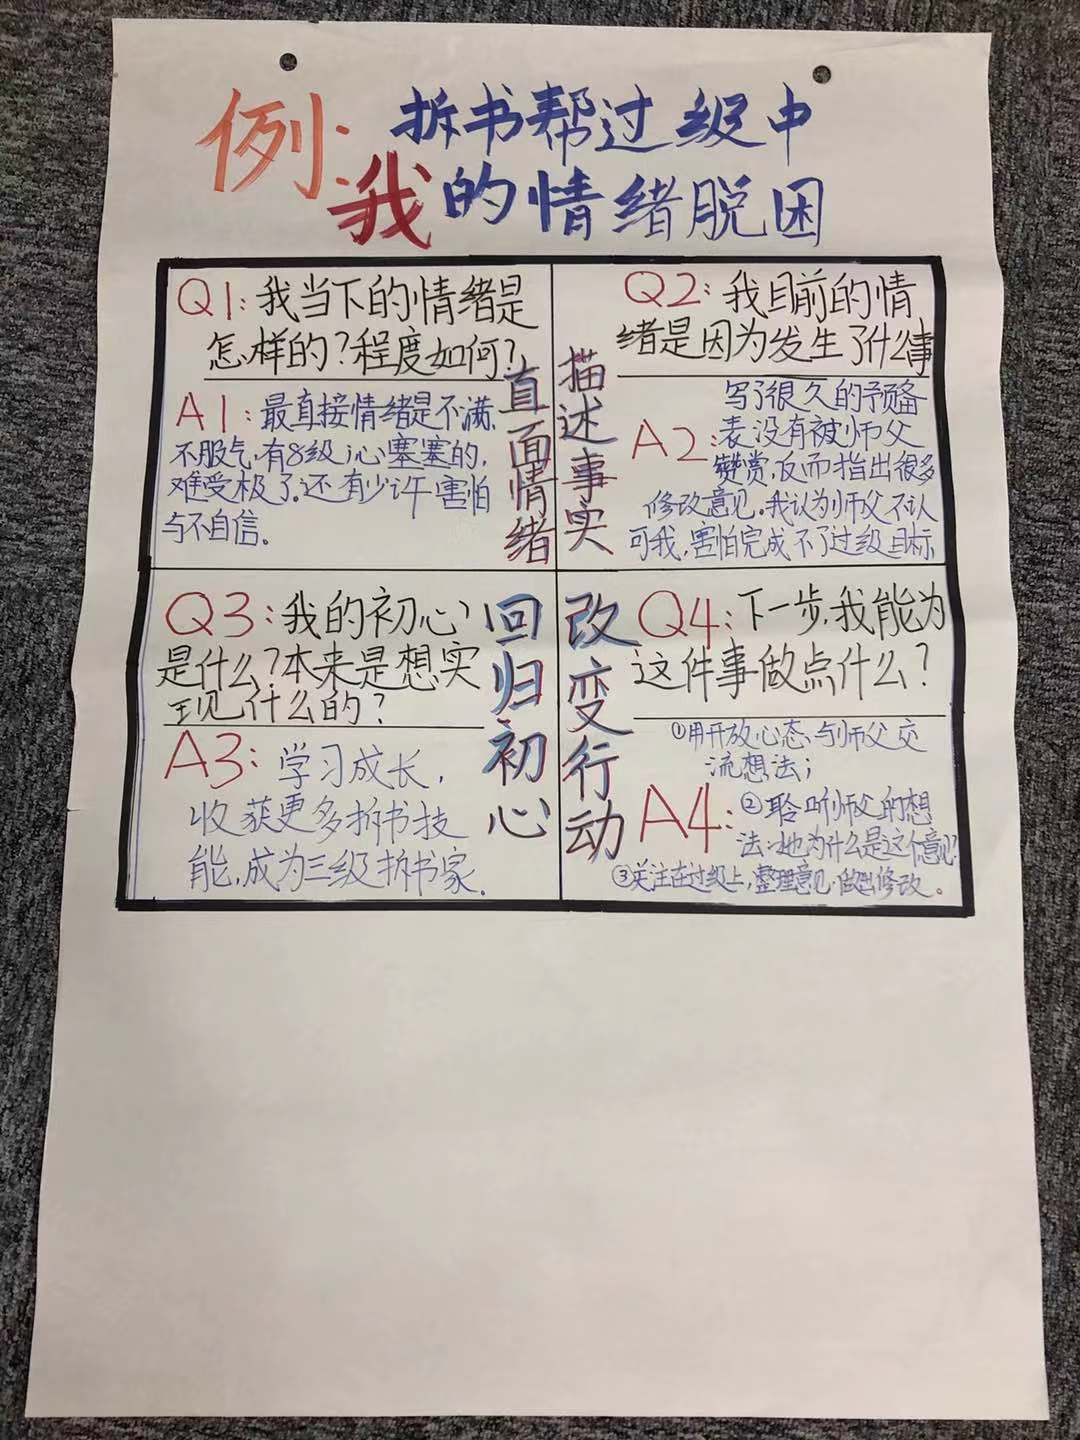 例: 拆书帮过级中
我的情绪脱困
Q1:我当下的情绪是
怎样的?程度如何?
直面情绪
A1:最直接情绪是不满、
不服气,有8级心塞塞的,
难受极了。还有少许害怕
与不自信。
Q2:我目前的情
绪是因为发生了什么事
描述事实
A2:写了很久的预备
表没有被师父
赞赏,反而指出很多
修改意见。我认为师父不认
可我,害怕完成不了过级目标
Q3:我的初心
是什么?本来是想实
现什么的?
回归初心
A3:学习成长,
收获更多拆书技
能,成为三级拆书家.
Q4:下一步,我能为
这件事做点什么?
改变行动
①用开放心态与师父交
流想法;
A4:②聆听师父的想
法:她为什么是这个意见?
③关注在过级上,整理意见,做出修改。